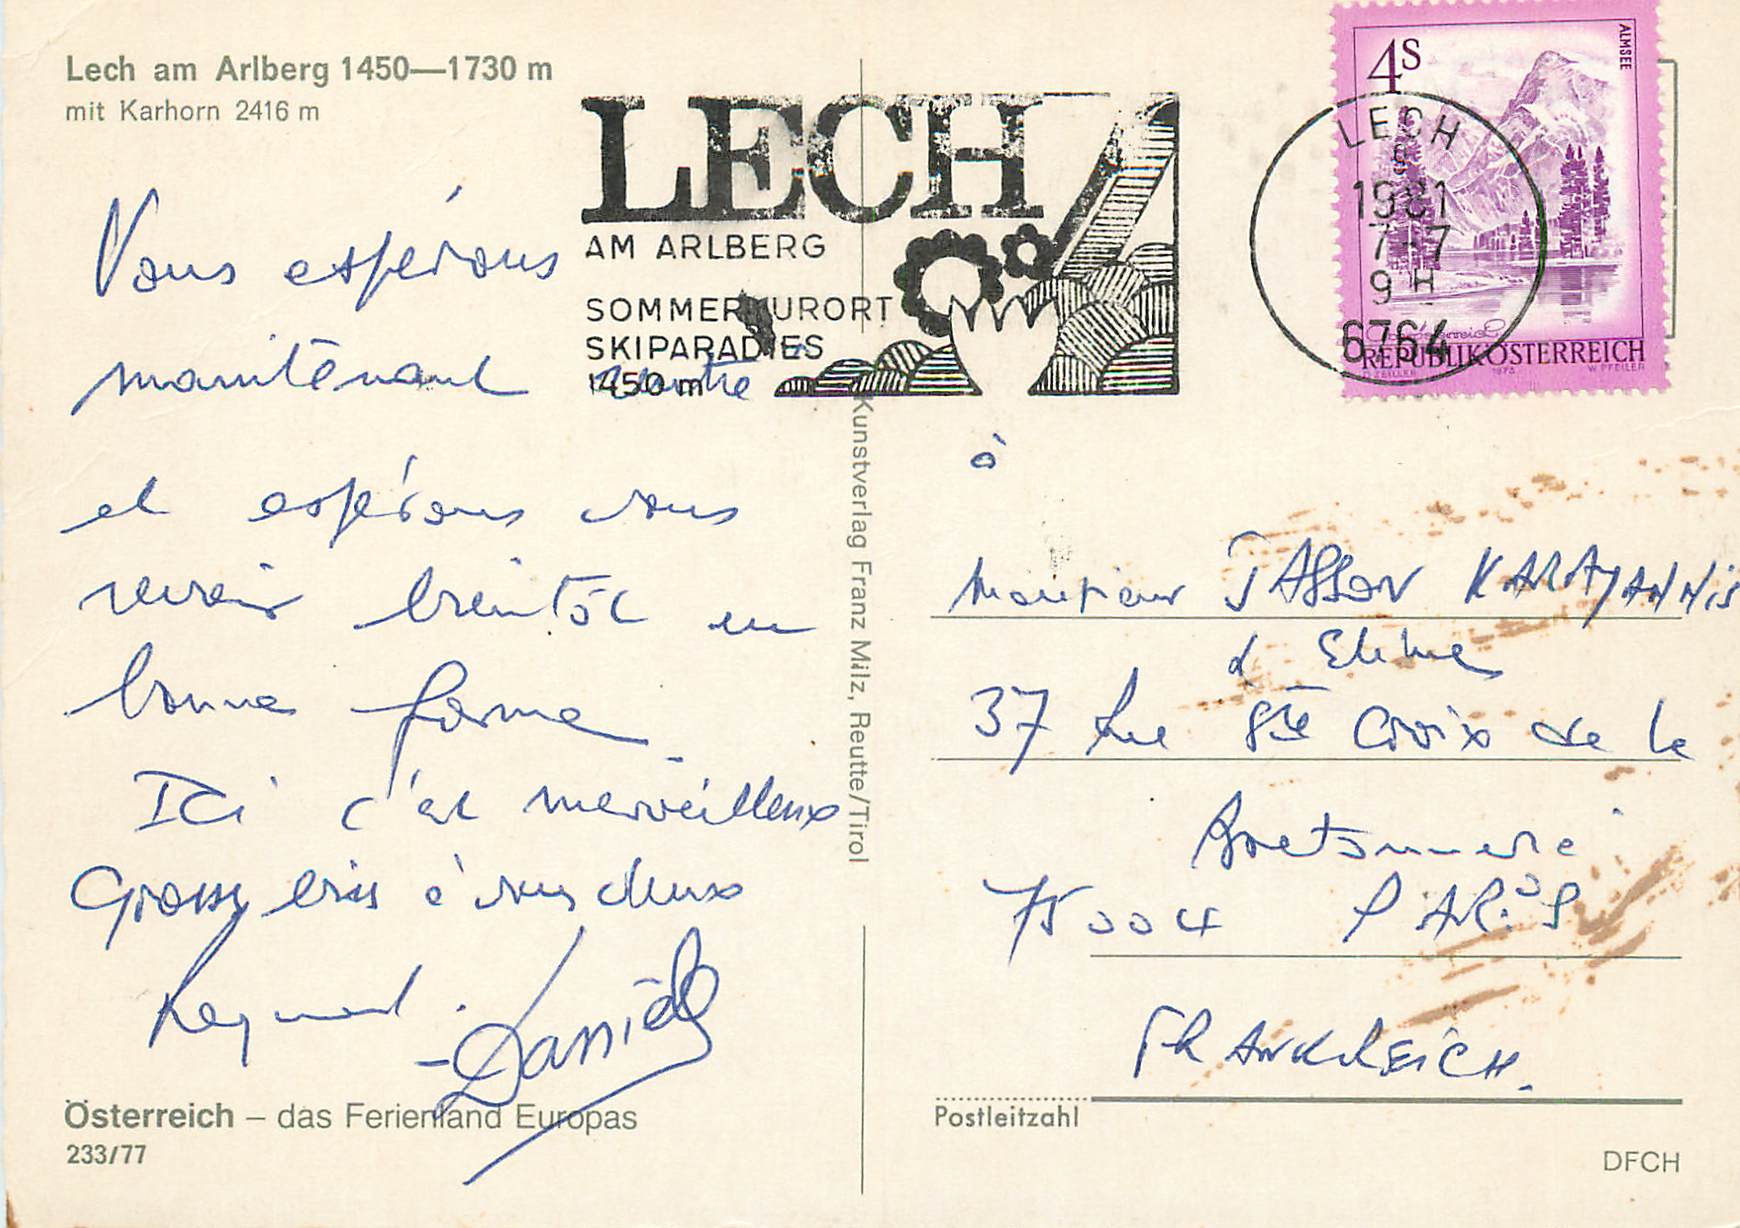 Lech am Arlberg 1450—1730 m
mit Karhorn 2416 m
Vous espérons
maintenant rentré
et espérons vous
revoir bientôt en
bonne forme
Ici c'est merveilleux
Gross bises à vous deux
Raymond.
-Daniel
Österreich – das Ferienland Europas
233/77
LECH
AM ARLBERG
SOMMERKURORT
SKIPARADIES
1450 m
Kunstverlag Franz Milz, Reutte/Tirol
4S
ALMSEE
LECH
1981
7-7
9 H
6764
REPUBLIK ÖSTERREICH
O. ZEILLER 1973 W. PFEILER
à
Monsieur JASSON KARAYANNIS
& Eliane
37 Rue Ste Croix de la
Bretonnerie
75004 PARIS
FRANKREICH.
Postleitzahl
DFCH